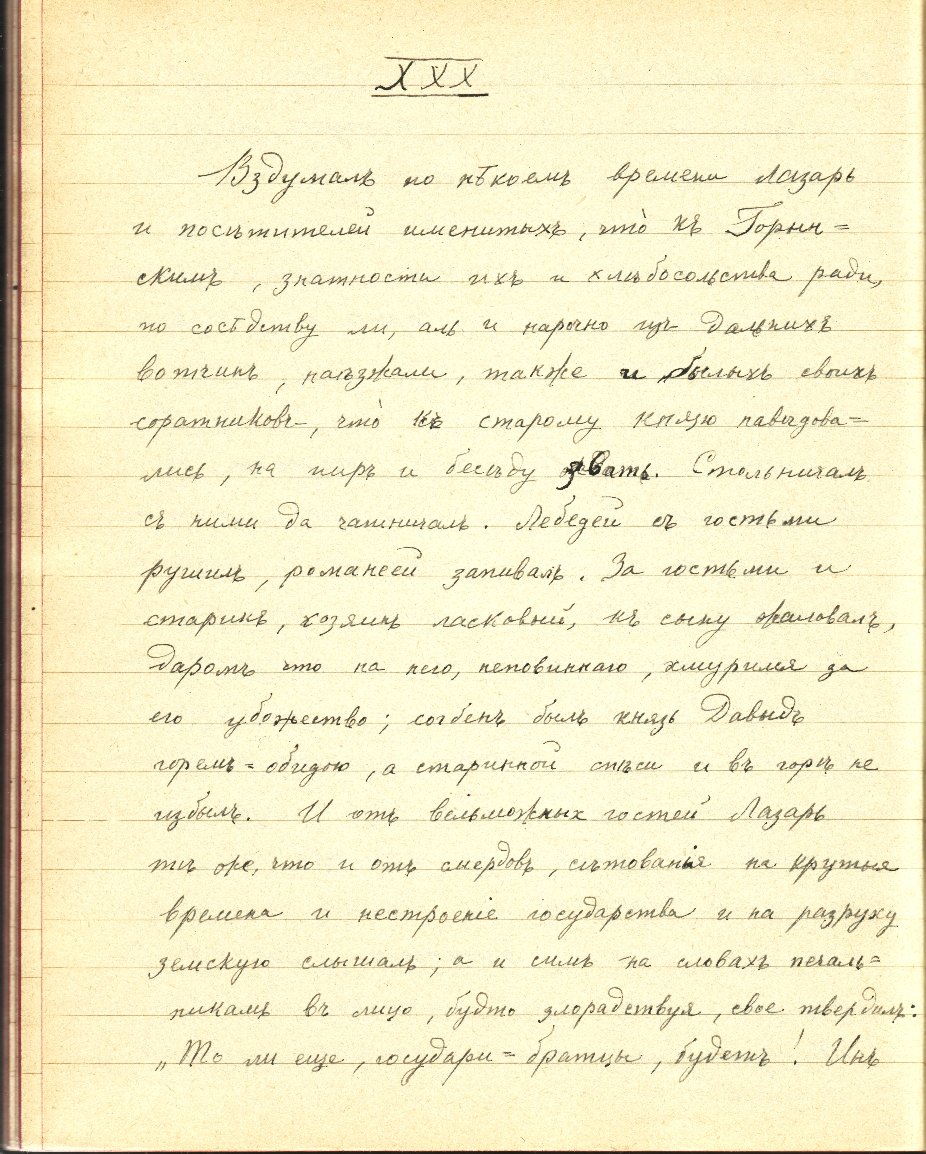 XXX
Вздумалъ по нѣкоемъ времени Лазарь
и посѣтителей именитыхъ, что̀ къ Горын-
скимъ, знатности ихъ и хлѣбосольства ради,
по сосѣдству ли, аль и нарочно изъ дальнихъ
вотчинъ, наѣзжали, также и былыхъ своихъ
соратниковъ, что̀ къ старому князю навѣдова=
лись, на пиръ и бесѣду звать. Стольничалъ
съ ними да чашничалъ. Лебедей съ гостьми
рушилъ, романеей запивалъ. За гостьми и
старикъ, хозяинъ ласковый, къ сыну жаловалъ,
даромъ что на него, неповиннаго, хмурился за
его убожество; согбенъ былъ князь Давыдъ
горемъ=обидою, а старинной спѣси и въ горѣ не
избылъ. И отъ вельможныхъ гостей Лазарь
тѣ же, что и отъ смердовъ, сѣтованія на крутыя
времена и нестроеніе государства и на разруху
земскую слышалъ; а и симъ на словахъ печаль=
никамъ въ лицо, будто злорадствуя, свое твердилъ:
„То ли еще, государи=братцы, будетъ! Инъ